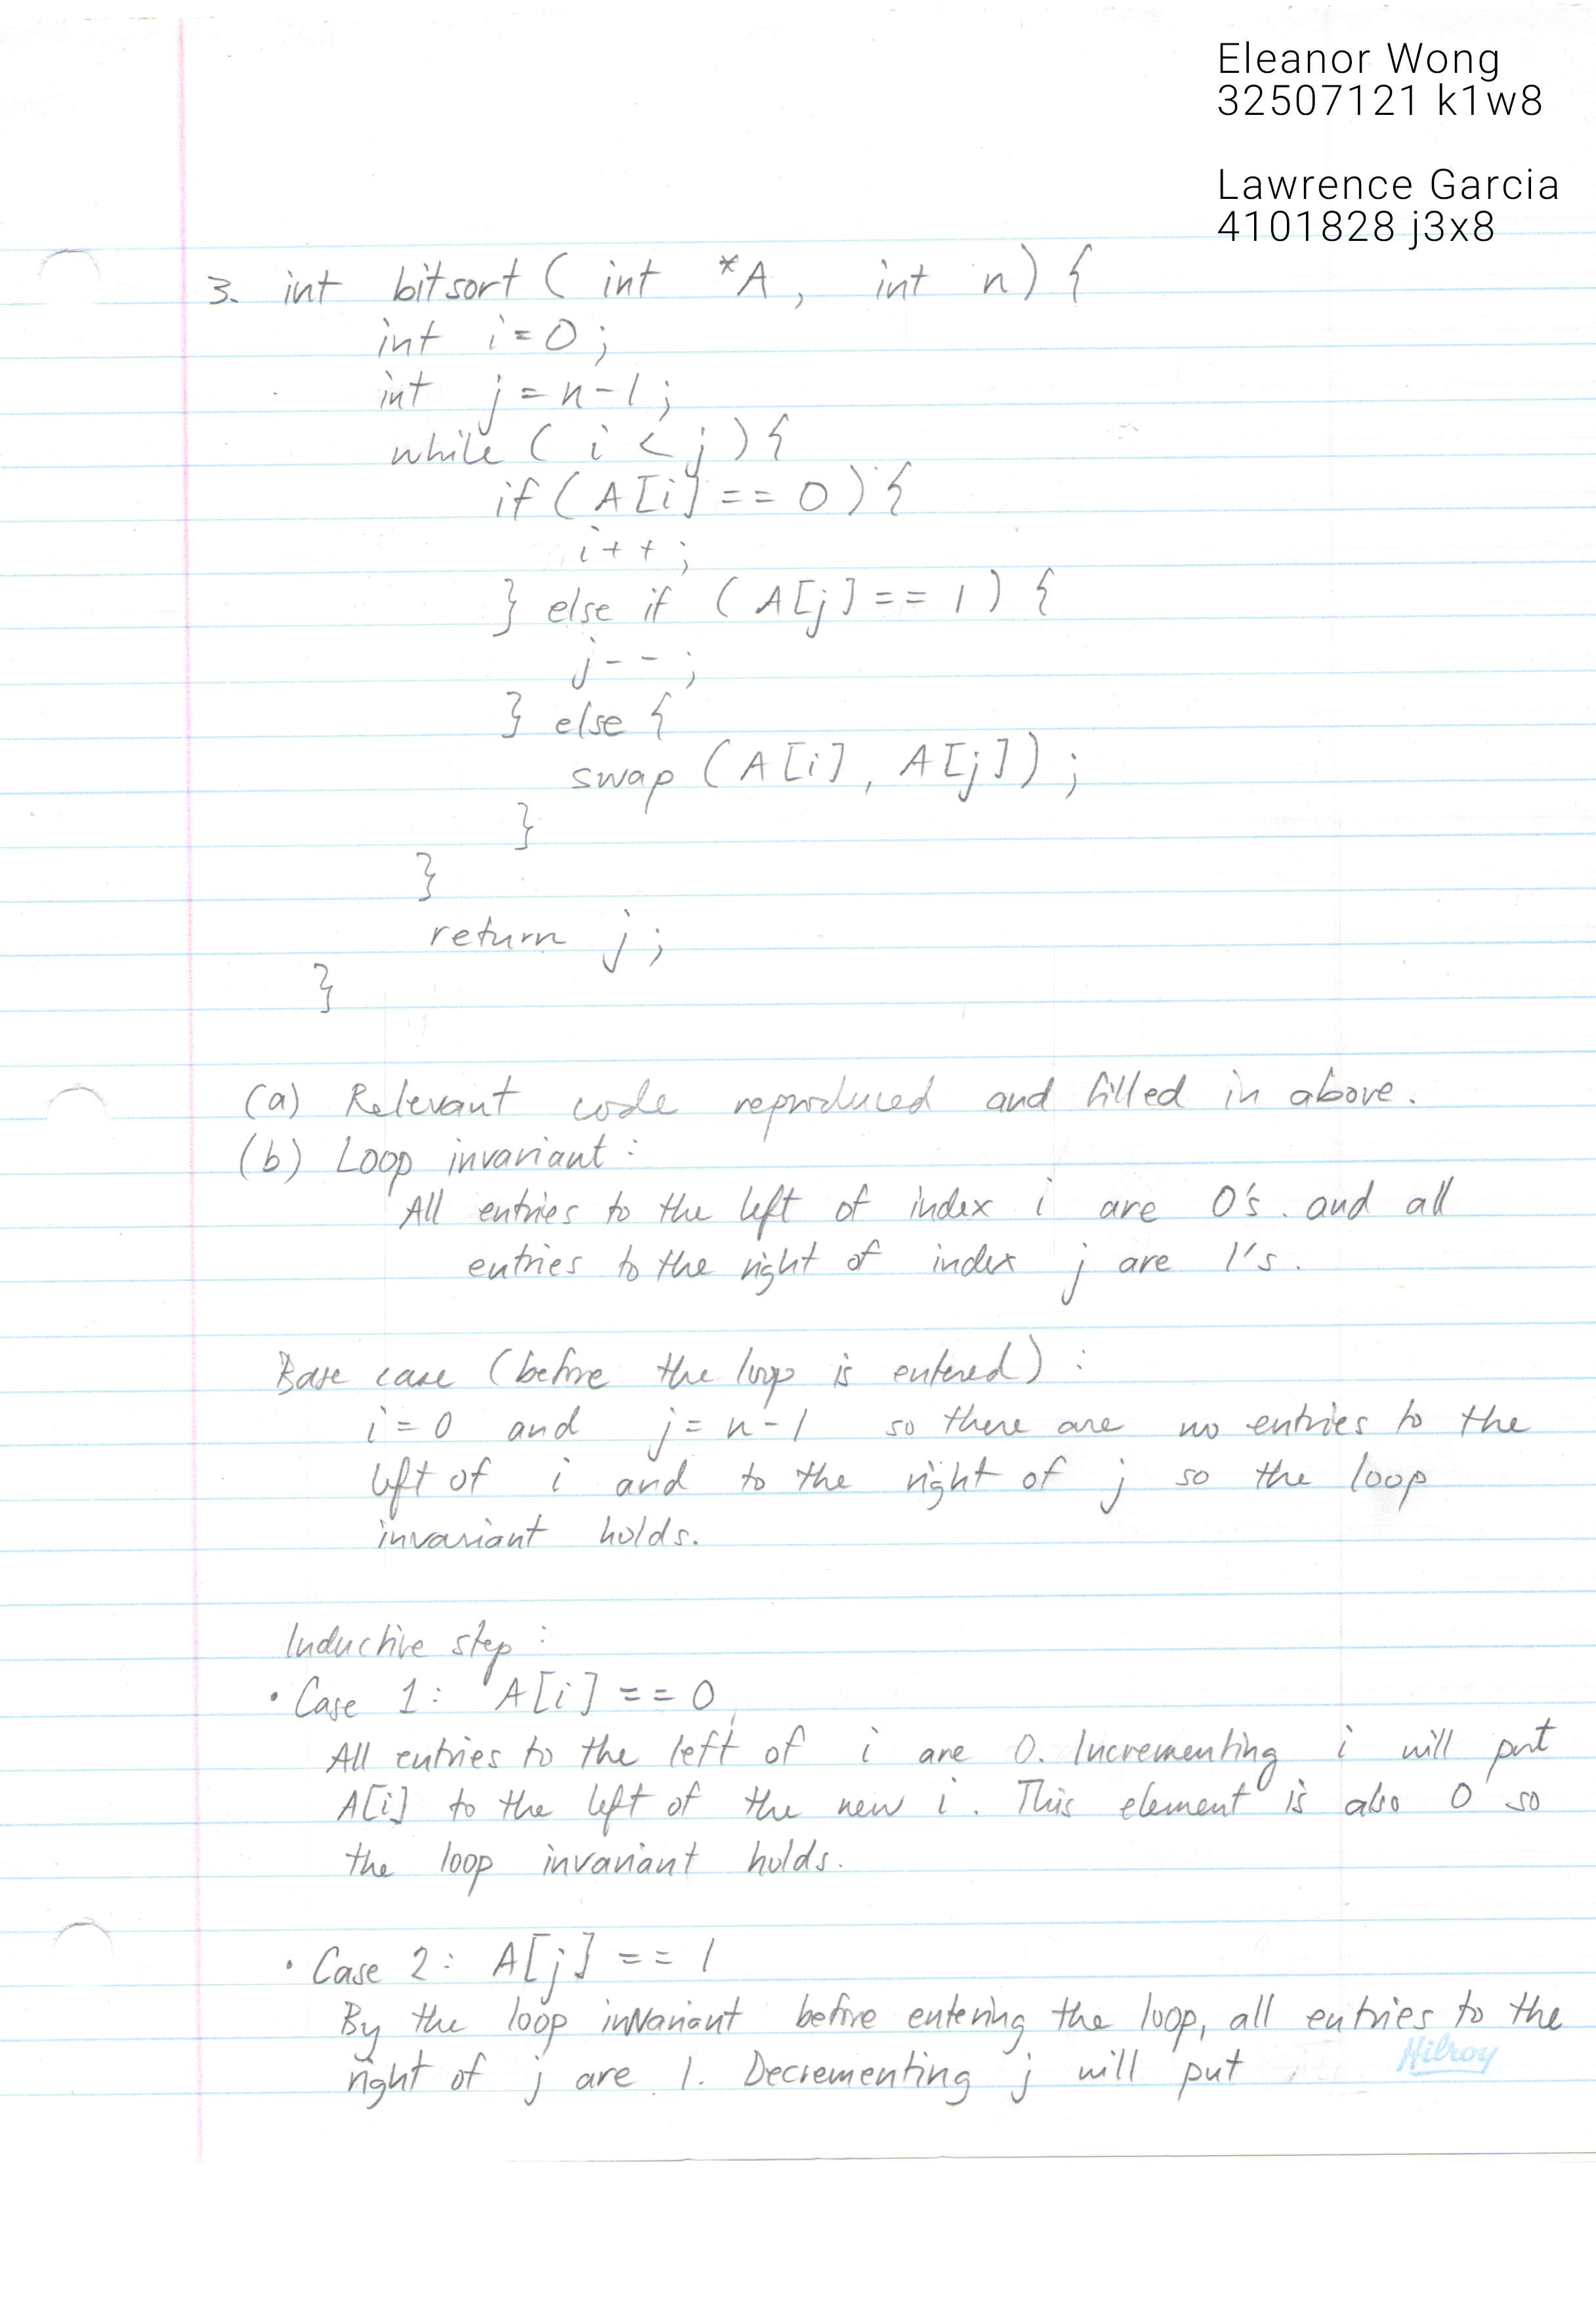 Eleanor Wong
32507121 k1w8
Lawrence Garcia
4101828 j3x8
3. int bitsort ( int *A, int n) {
int i=0;
int j=n-1;
while ( i < j ) {
if ( A[i] == 0 ) {
i++;
} else if ( A[j] == 1 ) {
j--;
} else {
swap ( A[i], A[j] );
}
}
return j;
}
(a) Relevant code reproduced and filled in above.
(b) Loop invariant:
All entries to the left of index i are 0's. and all
entries to the right of index j are 1's.
Base case (before the loop is entered):
i=0 and j=n-1 so there are no entries to the
left of i and to the right of j so the loop
invariant holds.
Inductive step:
• Case 1: A[i] == 0
All entries to the left of i are 0. Incrementing i will put
A[i] to the left of the new i. This element is also 0 so
the loop invariant holds.
• Case 2: A[j] == 1
By the loop invariant before entering the loop, all entries to the
right of j are 1. Decrementing j will put
Hilroy